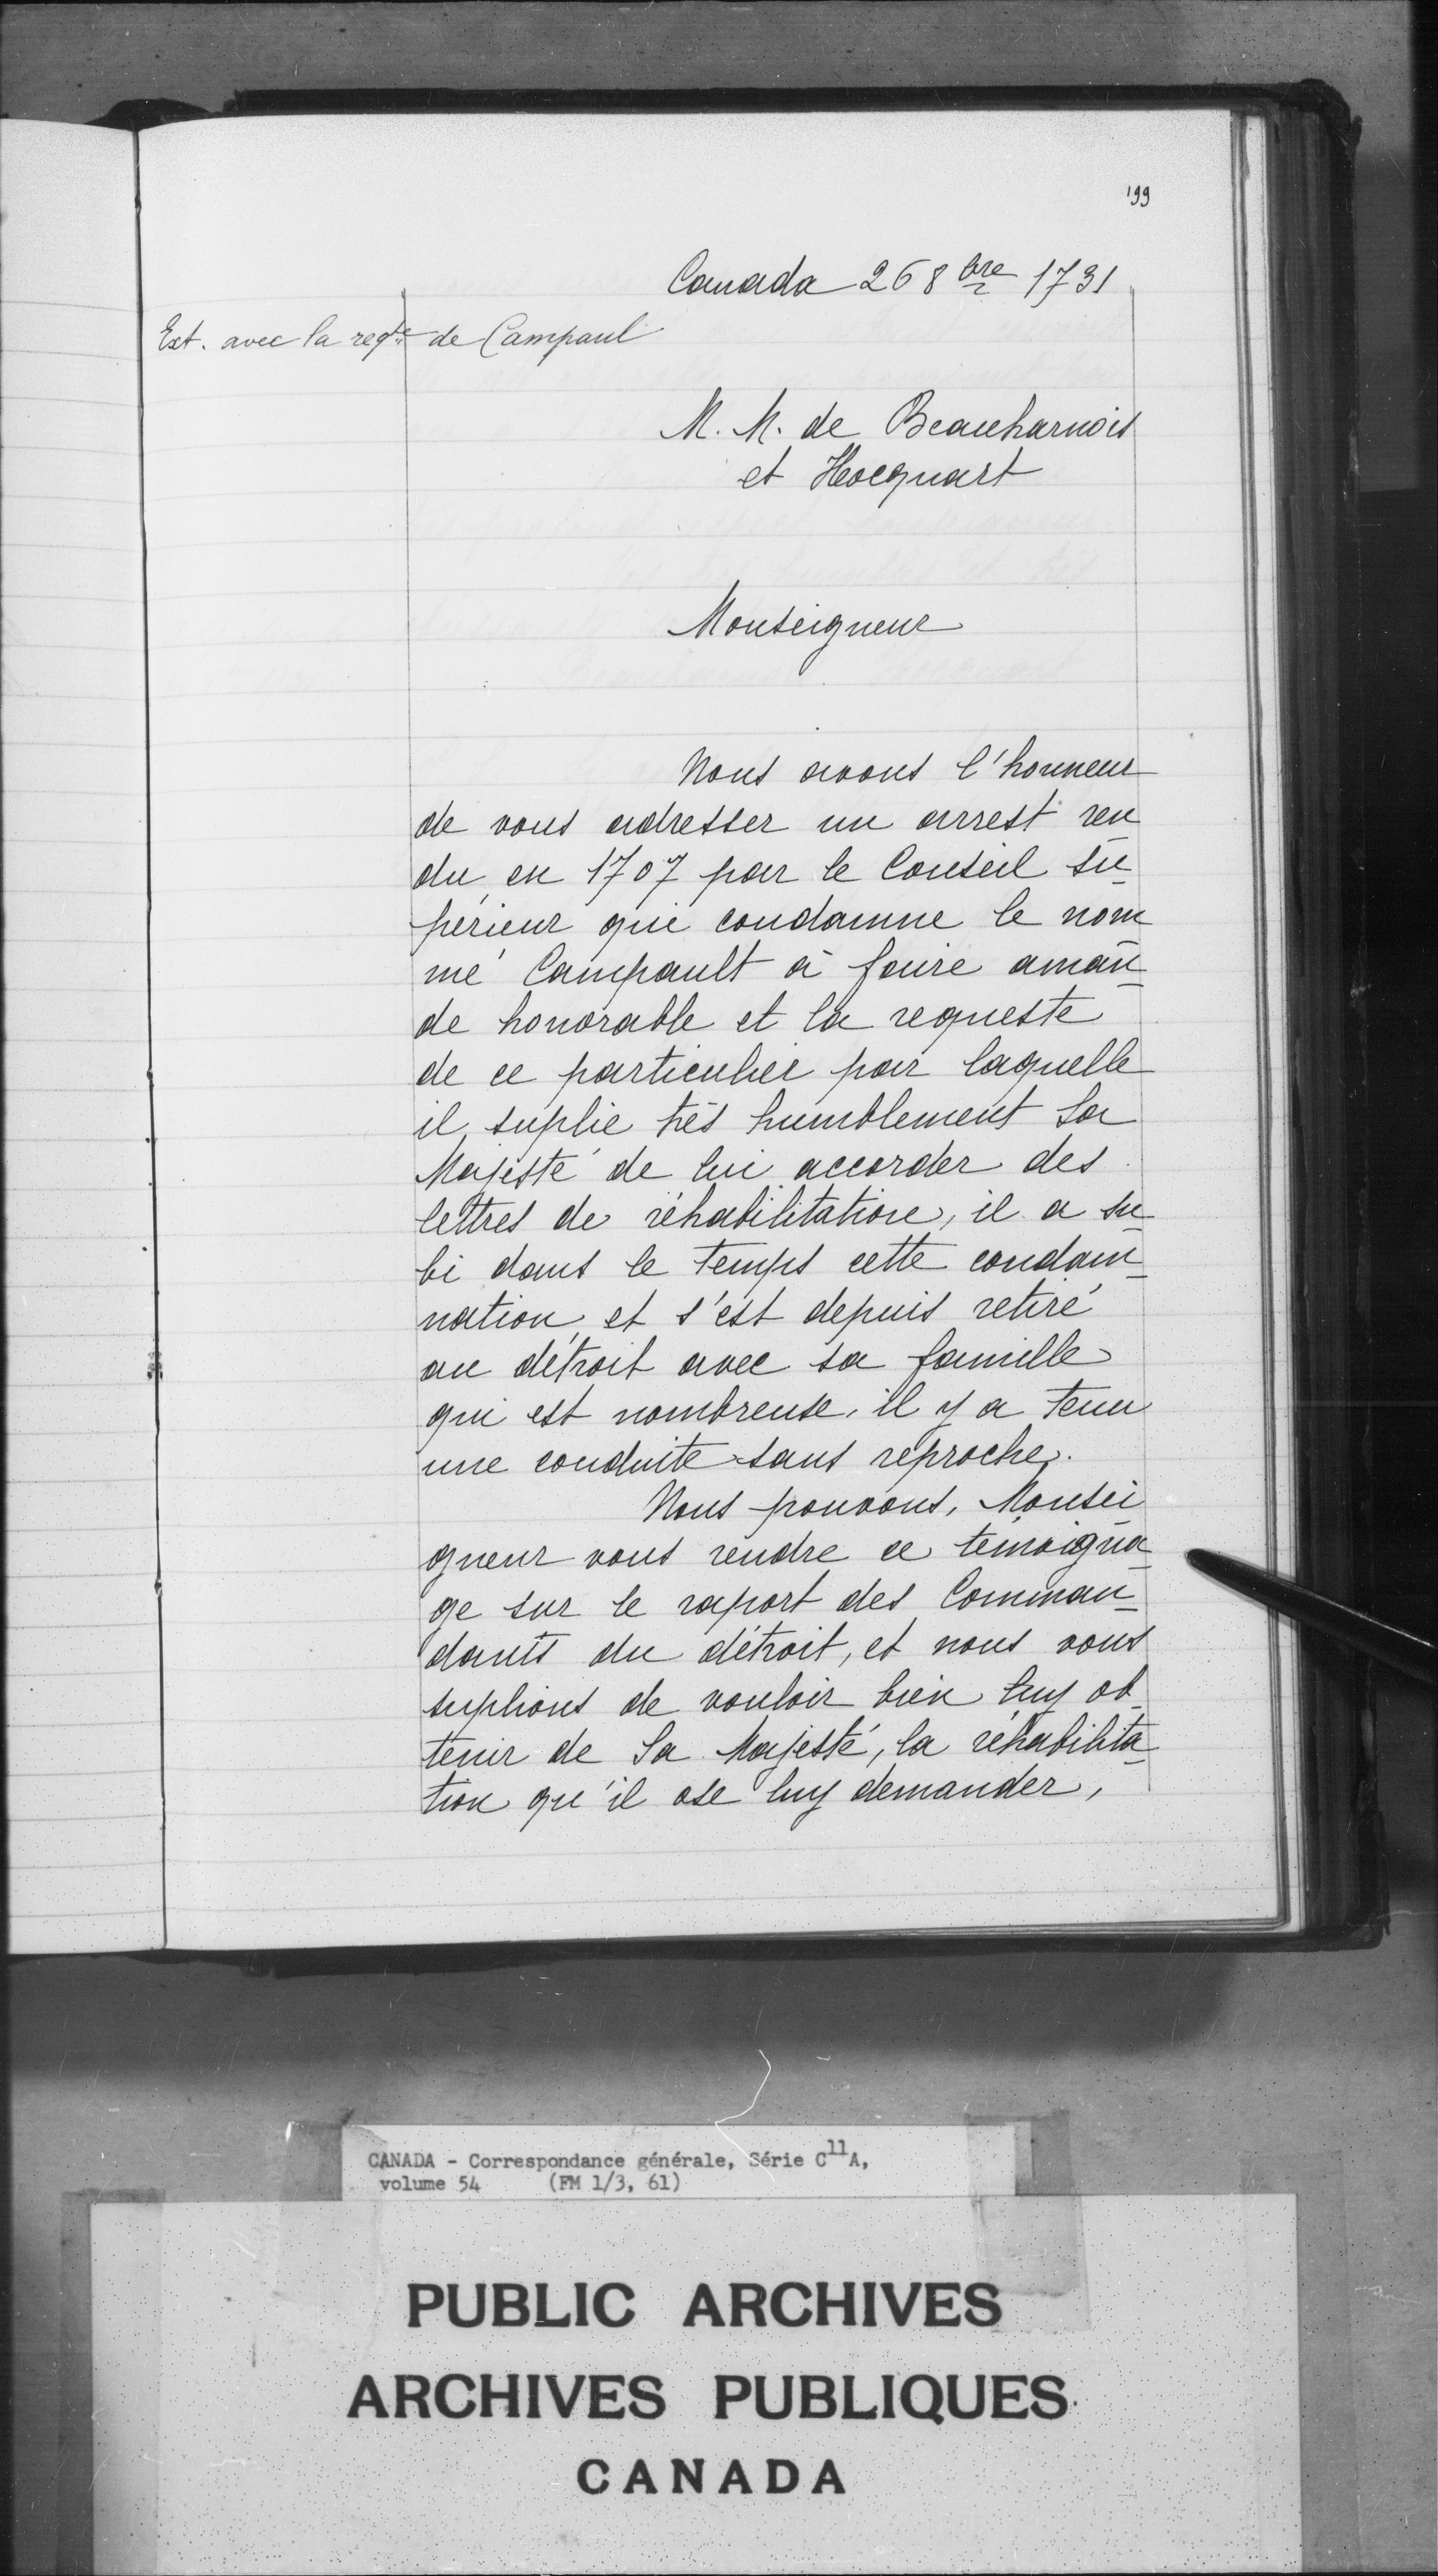 199
Canada 26 8bre 1731
Ext. avec la reqte de Campaul
M. M. de Beauharnois
et Hocquart
Monseigneur
Nous avons l'honneur
de vous adresser un arrest ren
du en 1707 par le Conseil su-
périeur qui condamne le nom
mé Campault à faire aman-
de honorable et la requeste
de ce particulier par laquelle
il suplie très humblement Sa
Majesté de lui accorder des
lettres de réhabilitation, il a su-
bi dans le temps cette condam-
nation, et s'est depuis retiré
au détroit avec sa famille
qui est nombreuse, il y a tenu
une conduite sans reproche.
Nous pouvons, Monsei
gneur vous rendre ce témoigna-
ge sur le raport des Comman-
dants du détroit, et nous vous
suplions de vouloir bien luy ob-
tenir de Sa Majesté, la réhabilita-
tion qu'il ose luy demander,
CANADA - Correspondance générale, Série C11A,
volume 54 (FM 1/3, 61)
PUBLIC ARCHIVES
ARCHIVES PUBLIQUES
CANADA